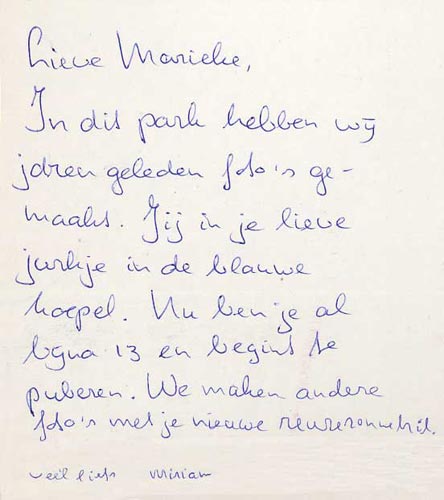 Lieve Marieke,
In dit park hebben wij
jaren geleden foto's ge-
maakt. Jij in je lieve
jurkje in de blauwe
koepel. Nu ben je al
bijna 13 en begint te
puberen. We maken andere
foto's met je nieuwe reuzezonnebril.
veel liefs Miriam